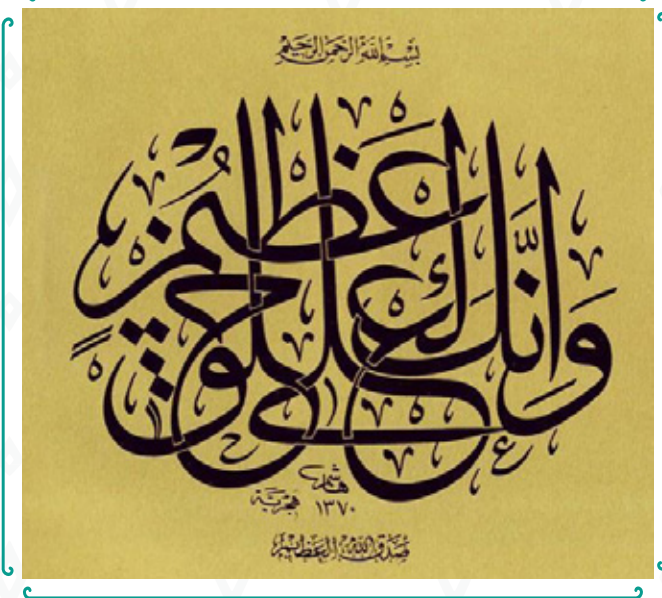 بسم الله الرحمن الرحيم
وَإِنَّكَ لَعَلى خُلُقٍ عَظِيمٍ
هاشم
١٣٧٠ هجرية
صدق الله العظيم